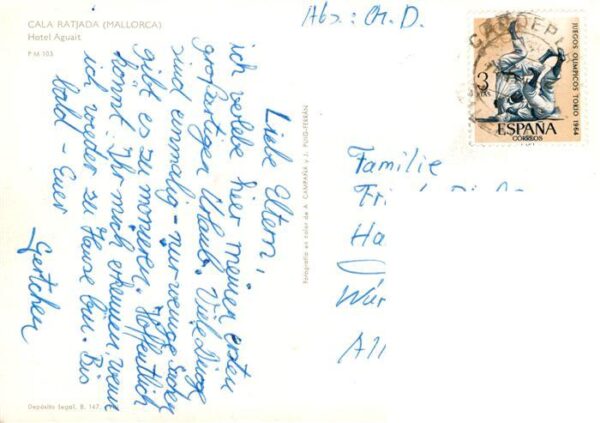 CALA RATJADA (MALLORCA)
Hotel Aguait
P M 103
Abs: G. D.
CAPDEPE
3
PTAS
JUEGOS OLIMPICOS TOKIO 1964
ESPAÑA
CORREOS
Liebe Eltern,
ich verlebe hier meinen ersten
großartigen Urlaub. Viele Dinge
sind einmalig - nur wenige Sachen
gibt es zu monieren. Hoffentlich
könnt Ihr mich erkennen, wenn
ich wieder zu Hause bin. Bis
bald - Euer
Gertchen
Fotografía en color de A. CAMPAÑA y J. PUIG-FERRÁN
Familie
Ha
Wür
All
Depósito legal. B. 167.